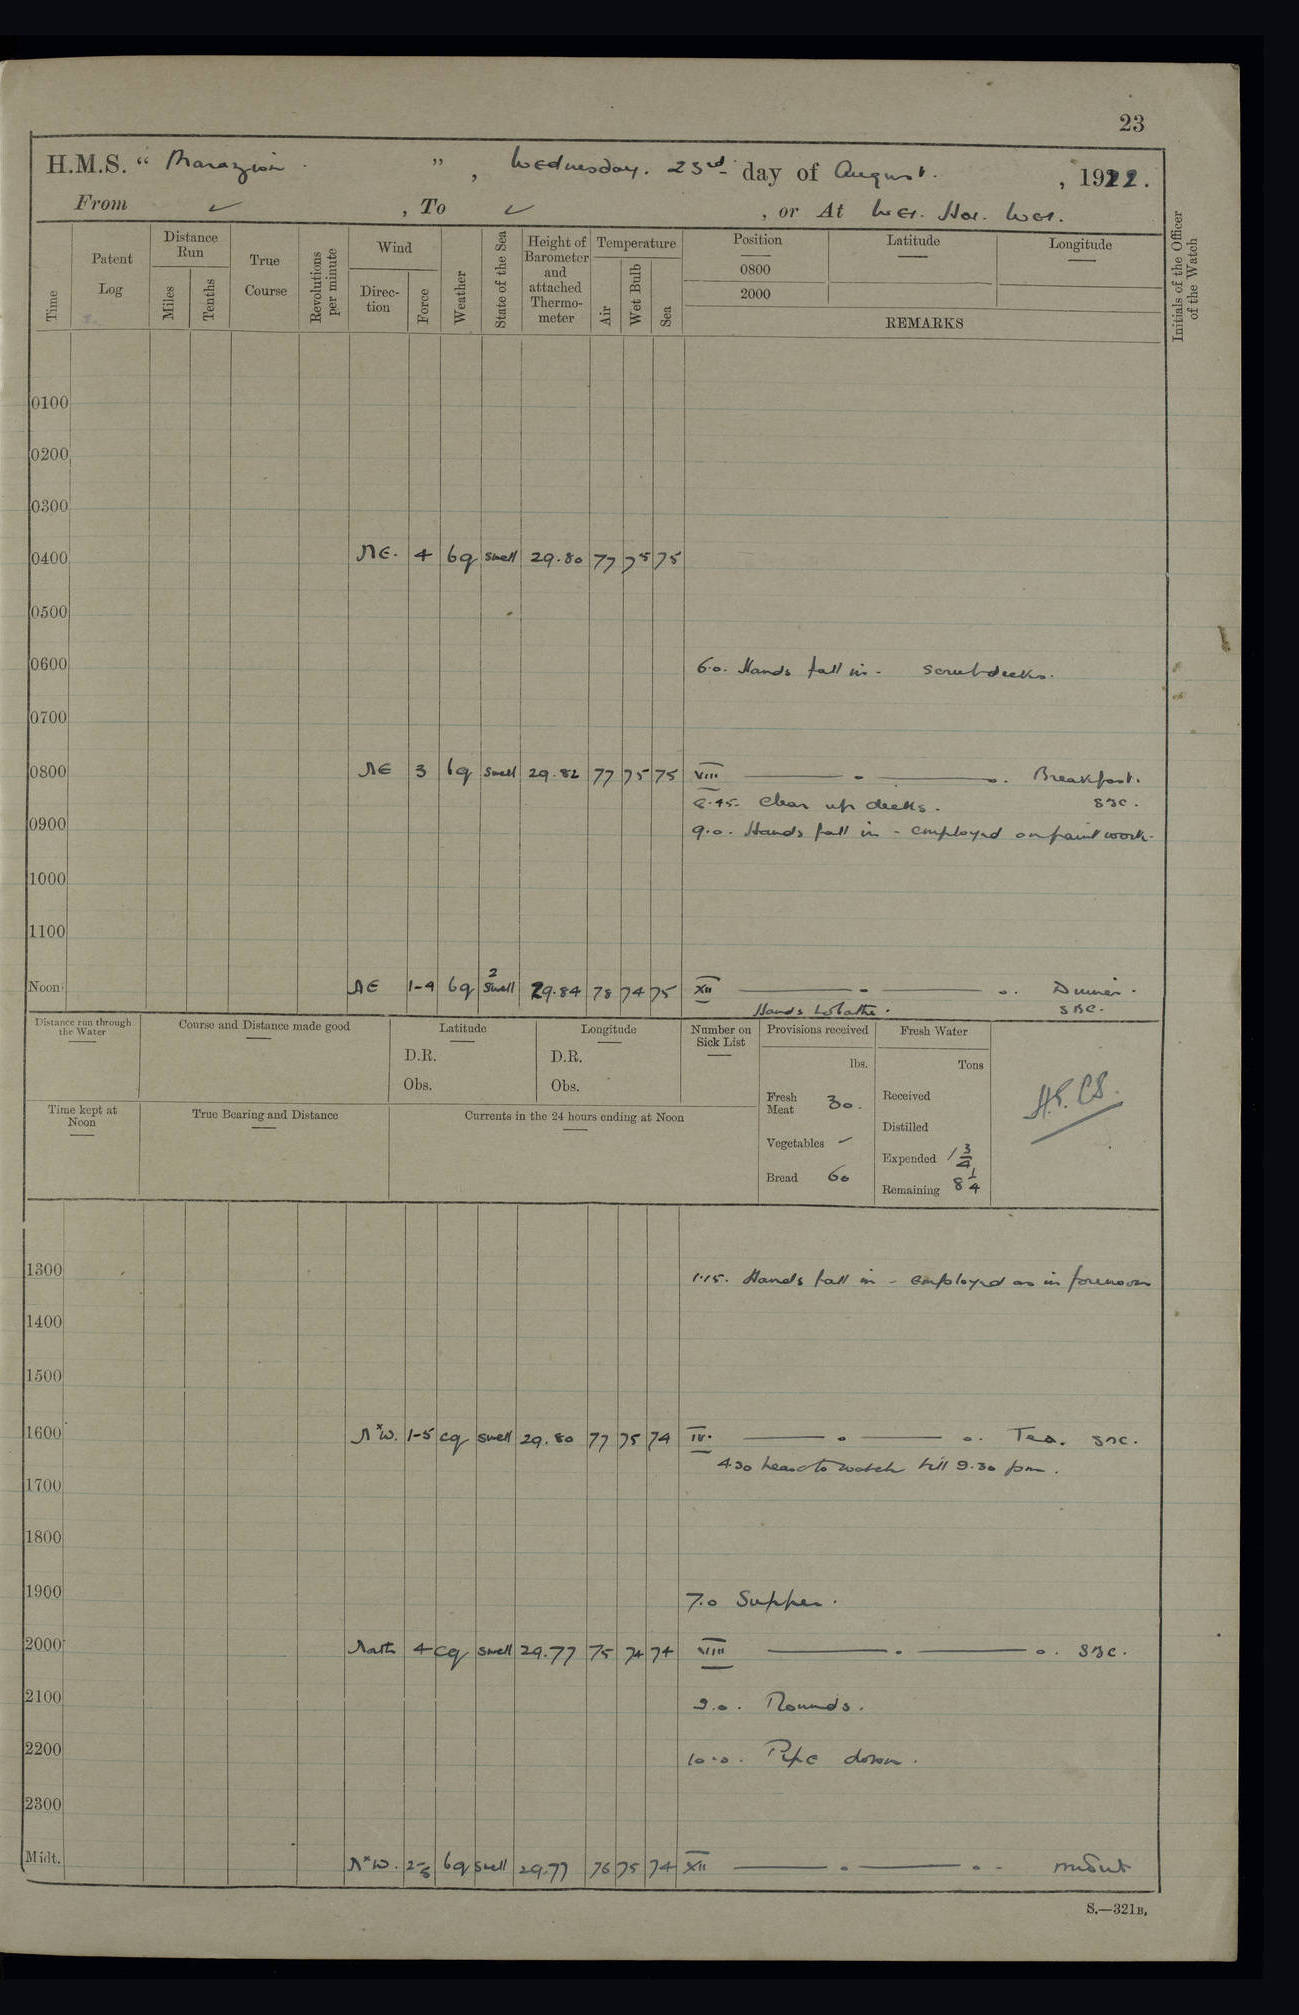 23
H.M.S. “ Marazion. ” , Wednesday. 23rd day of August. , 1922.
From ✓ , To ✓ , or At Wei. Hai. Wei.
Time
Patent Log
Distance Run
Miles
Tenths
True Course
Revolutions per minute
Wind
Direction
Force
Weather
State of the Sea
Height of Barometer and attached Thermometer
Temperature
Air
Wet Bulb
Sea
Position
0800
2000
Latitude
Longitude
REMARKS
Initials of the Officer of the Watch
0100
0200
0300
0400 NE. 4 bq swell 29.80 77 75 75
0500
0600 6.0. Hands fall in - scrub decks.
0700
0800 NE 3 bq swell 29.82 77 75 75 VIII — . — o. Breakfast.
8.45. Clear up decks.
0900 9.0. Hands fall in - employed on paint work.
1000
1100
Noon NE 1-4 bq 2 swell 29.84 78 74 75 XII — . — o. Dinner.
Hands to bathe.
Distance run through the Water
Course and Distance made good
Latitude
D.R.
Obs.
Longitude
D.R.
Obs.
Number on Sick List
Provisions received
lbs.
Fresh Meat 30.
Vegetables ✓
Bread 60
Fresh Water
Tons
Received
Distilled
Expended 1 3/4
Remaining 8 1/4
Time kept at Noon
True Bearing and Distance
Currents in the 24 hours ending at Noon
1300 1.15. Hands fall in - employed as in forenoon
1400
1500
1600 NxW. 1-5 cq swell 29.80 77 75 74 IV. — o — o. Tea.
4.30 leave to watch till 9.30 pm.
1700
1800
1900 7.0 Supper.
2000 North 4 cq swell 29.77 75 74 74 VIII — . — o.
2100 9.0. Rounds.
2200 10.0. Pipe down.
2300
Midt. NxW. 2-5 bq swell 29.77 76 75 74 XII — . — . -
S.—321B.